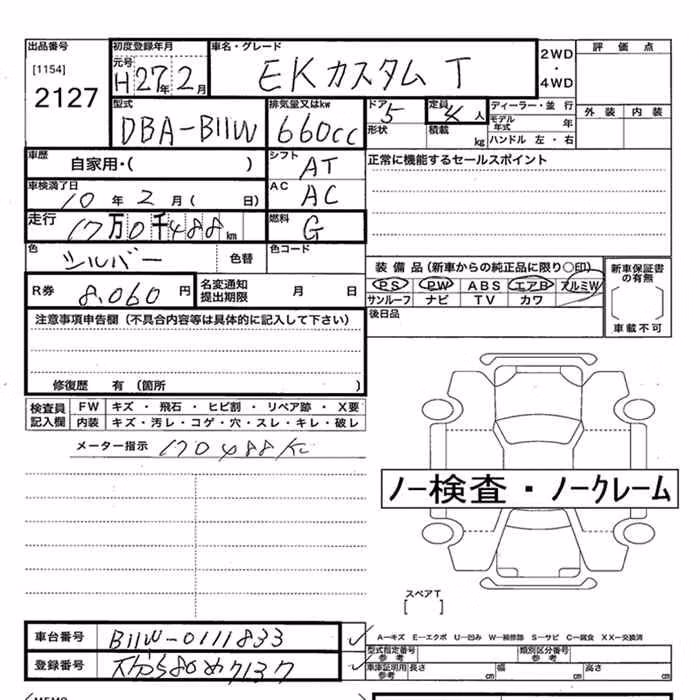 出品番号 初度登録年月 車名・グレード 2WD 評価点
[1154] 元号 H 27年 2月 EKカスタム T ・
2127 4WD
型式 排気量又はkw ドア 5 定員 4人 ディーラー・並行 外装 内装
DBA-B11W 660cc モデル年式 年
形状 積載 kg ハンドル 左・右
車歴 自家用・( ) シフト AT 正常に機能するセールスポイント
車検満了日 10年 2月 ( 日) AC AC
走行 17万0千488km 燃料 G
色 シルバー 色替 色コード
装備品(新車からの純正品に限り○印) 新車保証書の有無
R券 8,060円 名変通知提出期限 月 日 PS PW ABS エアB アルミW
サンルーフ ナビ TV カワ
注意事項申告欄(不具合内容等は具体的に記入して下さい) 後日品 車載不可
修復歴 有 (箇所 )
検査員記入欄 FW キズ・飛石・ヒビ割・リペア跡・X要
内装 キズ・汚レ・コゲ・穴・スレ・キレ・破レ
メーター指示 170488K
ノー検査・ノークレーム
スペアT
[ ]
車台番号 B11W-0111833 A−キズ E−エクボ U−凹み W−補修跡 S−サビ C−腐食 XX−交換済
型式指定番号 参考 類別区分番号 参考
登録番号 580 7137 車庫証明用参考 長さ cm 幅 cm 高さ cm
MEMO